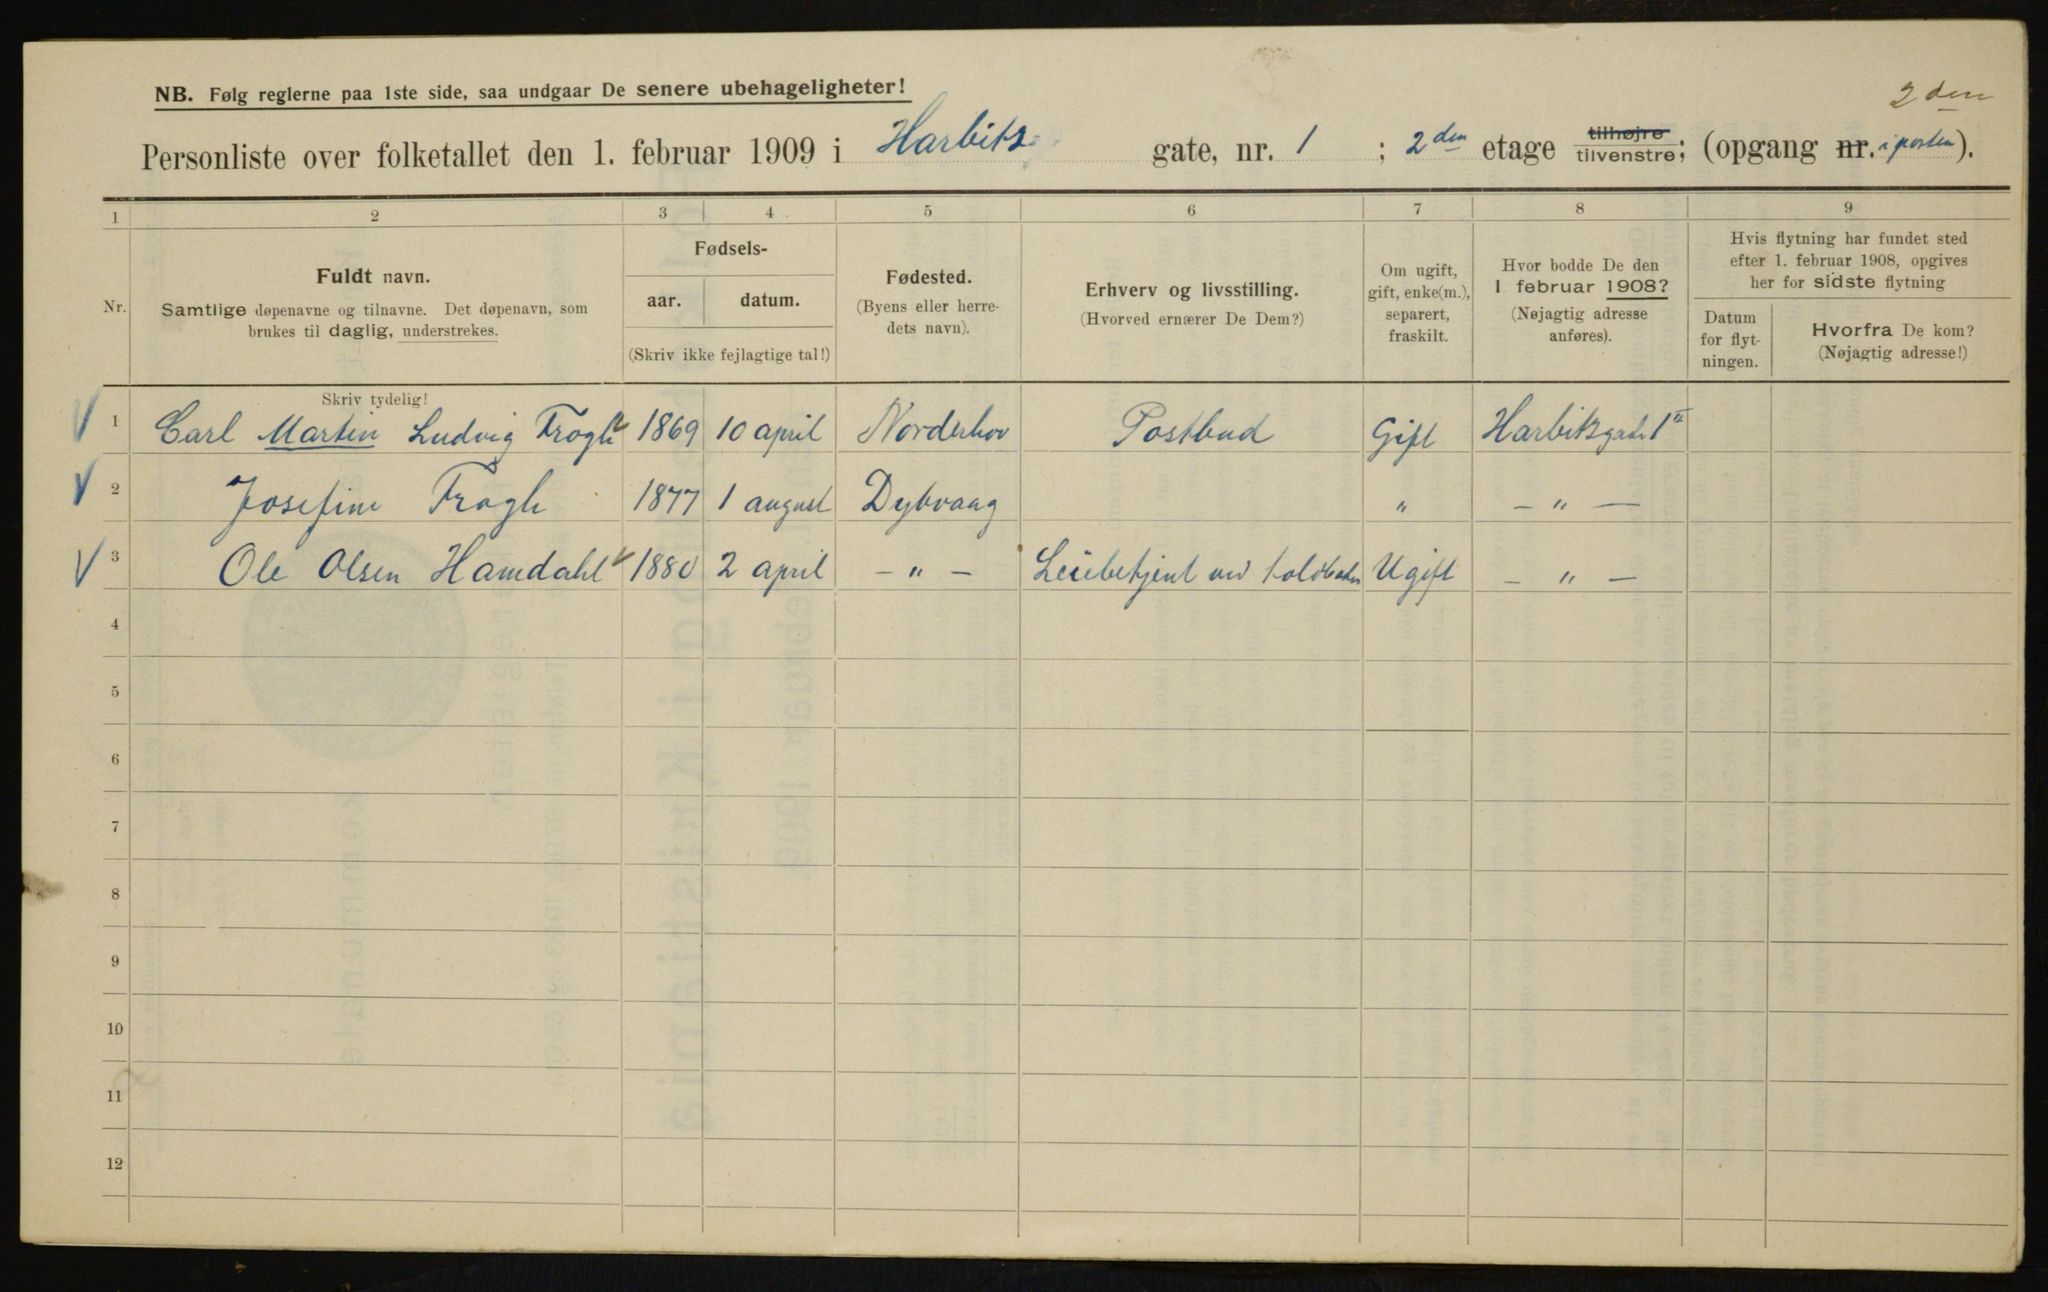 2 den
NB. Følg reglerne paa 1ste side, saa undgaar De senere ubehageligheter!
Personliste over folketallet den 1. februar 1909 i Harbitz gate, nr. 1 ; 2 den etage tilhøjre tilvenstre; (opgang nr. i porten).
1 2 3 4 5 6 7 8 9
Nr.
Fuldt navn.
Samtlige døpenavne og tilnavne. Det døpenavn, som
brukes til daglig, understrekes.
Fødsels-
aar. datum.
(Skriv ikke fejlagtige tal!)
Fødested.
(Byens eller herre-
dets navn).
Erhverv og livsstilling.
(Hvorved ernærer De Dem?)
Om ugift,
gift, enke(m.),
separert,
fraskilt.
Hvor bodde De den
1 februar 1908?
(Nøjagtig adresse
anføres).
Hvis flytning har fundet sted
efter 1. februar 1908, opgives
her for sidste flytning
Datum
for flyt-
ningen.
Hvorfra De kom?
(Nøjagtig adresse!)
Skriv tydelig!
1 Carl Martin Ludvig Frogh 1869 10 april Norderhov Postbud Gift Harbitzgate 1 II
2 Josefine Frogh 1877 1 august Dybvaag " – " –
3 Ole Olsen Hamdahl 1880 2 april – " – Leiebetjent ved toldboden Ugift – " –
4
5
6
7
8
9
10
11
12